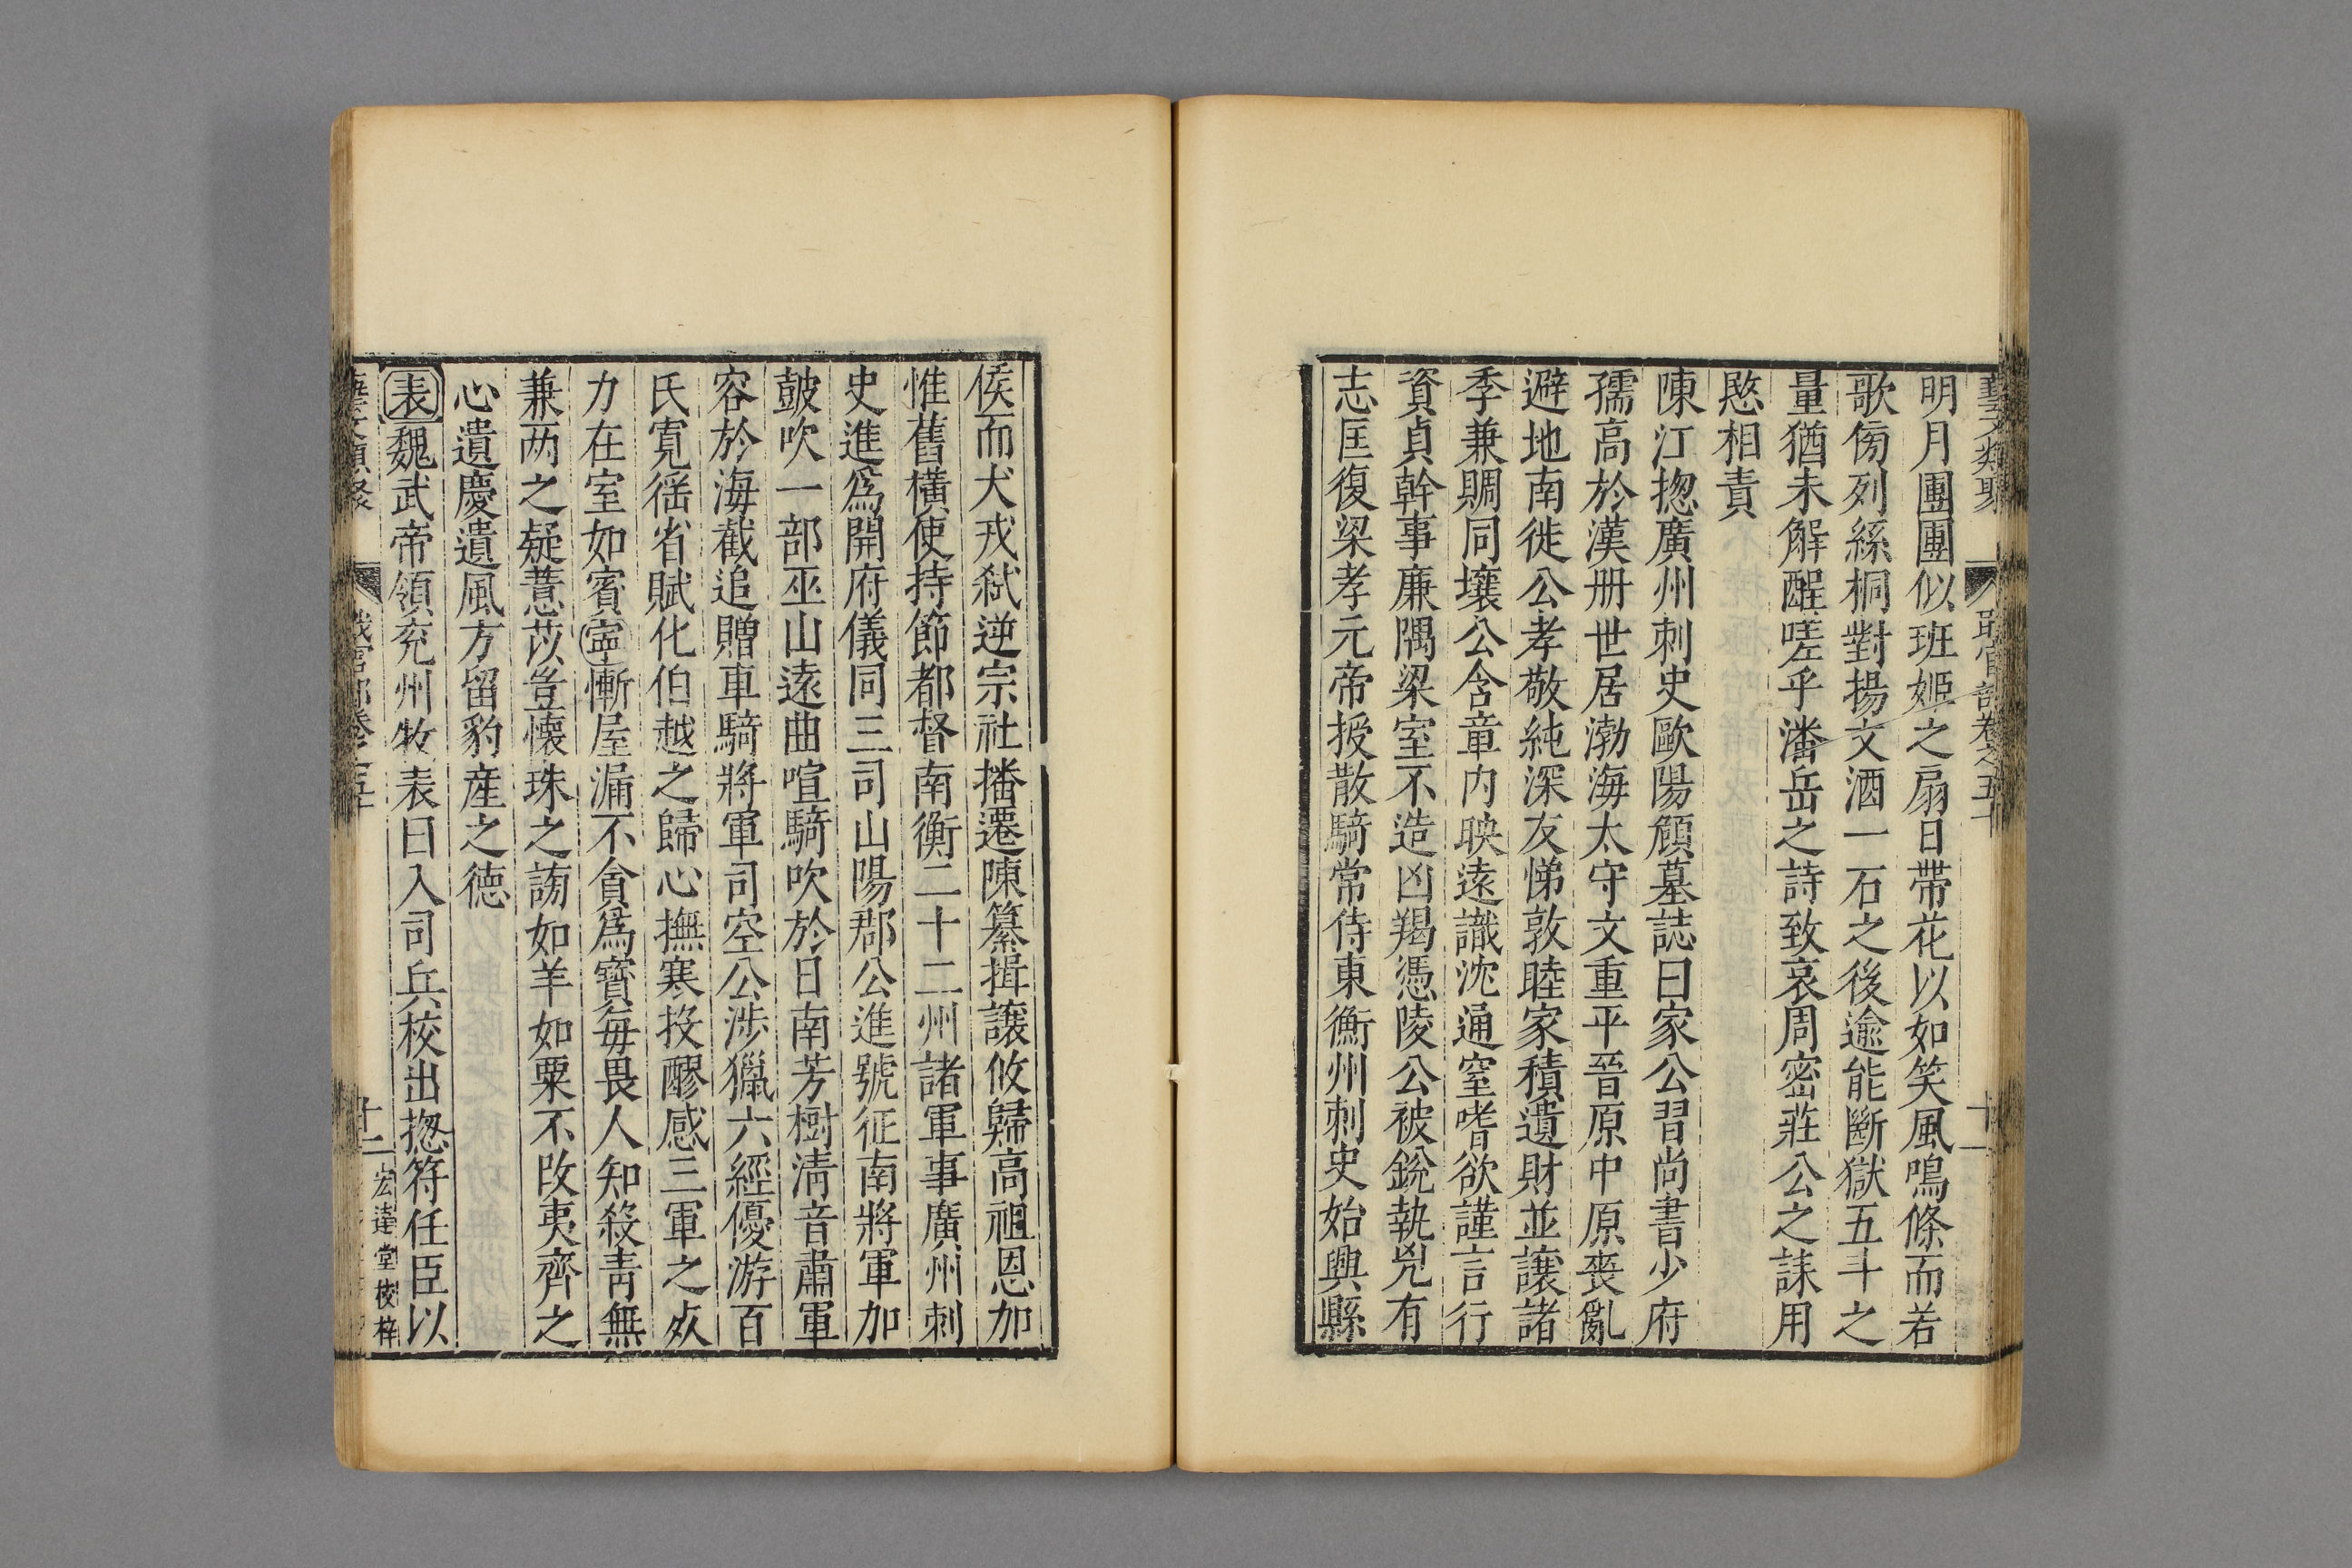 藝文類聚 職官部卷之五十 十一
明月團團似班姬之扇日帶花以如笑風鳴條而若
歌傍列絲桐對揚文酒一石之後逾能斷獄五斗之
量猶未解酲嗟乎潘岳之詩致哀周密莊公之誄用
愍相責
陳江揔廣州刺史歐陽頠墓誌曰家公習尚書少府
孺高於漢冊世居渤海太守文重平晉原中原喪亂
避地南徙公孝敬純深友悌敦睦家積遺財並讓諸
季兼賙同壤公含章内映遠識沈通窒嗜欲謹言行
資貞幹事廉隅梁室不造凶羯憑陵公被銳執兇有
志匡復梁孝元帝授散騎常侍東衡州刺史始興縣
侯而犬戎弑逆宗社播遷陳纂揖讓攸歸高祖恩加
惟舊橫使持節都督南衡二十二州諸軍事廣州刺
史進爲開府儀同三司山陽郡公進號征南將軍加
鼓吹一部巫山遠曲喧騎吹於日南芳樹淸音肅軍
容於海截追贈車騎將軍司空公涉獵六經優游百
氏寬徭省賦化伯越之歸心撫寒投醪感三軍之死
力在室如賓寍慚屋漏不貪爲寶每畏人知殺靑無
兼两之疑薏苡豈懷珠之謗如羊如粟不改夷齊之
心遺慶遺風方留豹産之德
表魏武帝領兖州牧表曰入司兵校出揔符任臣以
藝文類聚 職官部卷之五十 十二 宏達堂校梓